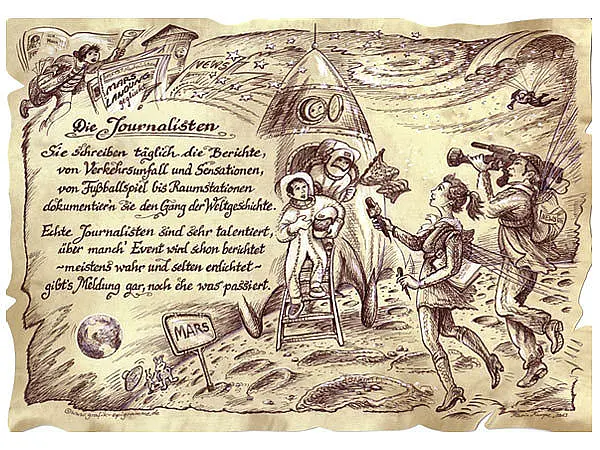 MARS
LANDUNG
NEWS
Die Journalisten
Sie schreiben täglich die Berichte,
von Verkehrsunfall und Sensationen,
von Fußballspiel bis Raumstationen
dokumentier'n sie den Gang der Weltgeschichte.
Echte Journalisten sind sehr talentiert,
über manch' Event wird schon berichtet
~meistens wahr und selten erdichtet~
gibt's Meldung gar, noch ehe was passiert.
MARS
©www.grafik-epigramme.de